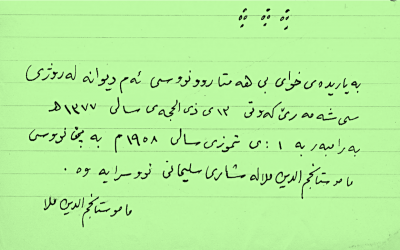 بە یاریدەی خوای بی هەمتا روونووسی ئەم دیوانە لە رۆژی
سی شەمەرێکەوتی ١٣ی ذی الحجەی سالی ١٣٧٧هـ
بەرامبەر بە ١ :ی تموزی سالی ١٩٥٨م بە پێ نووسی
ماموستا نجم الدین ملا لە شاری سلیمانی نووسرایەوە .
ماموستا نجم الدین ملا